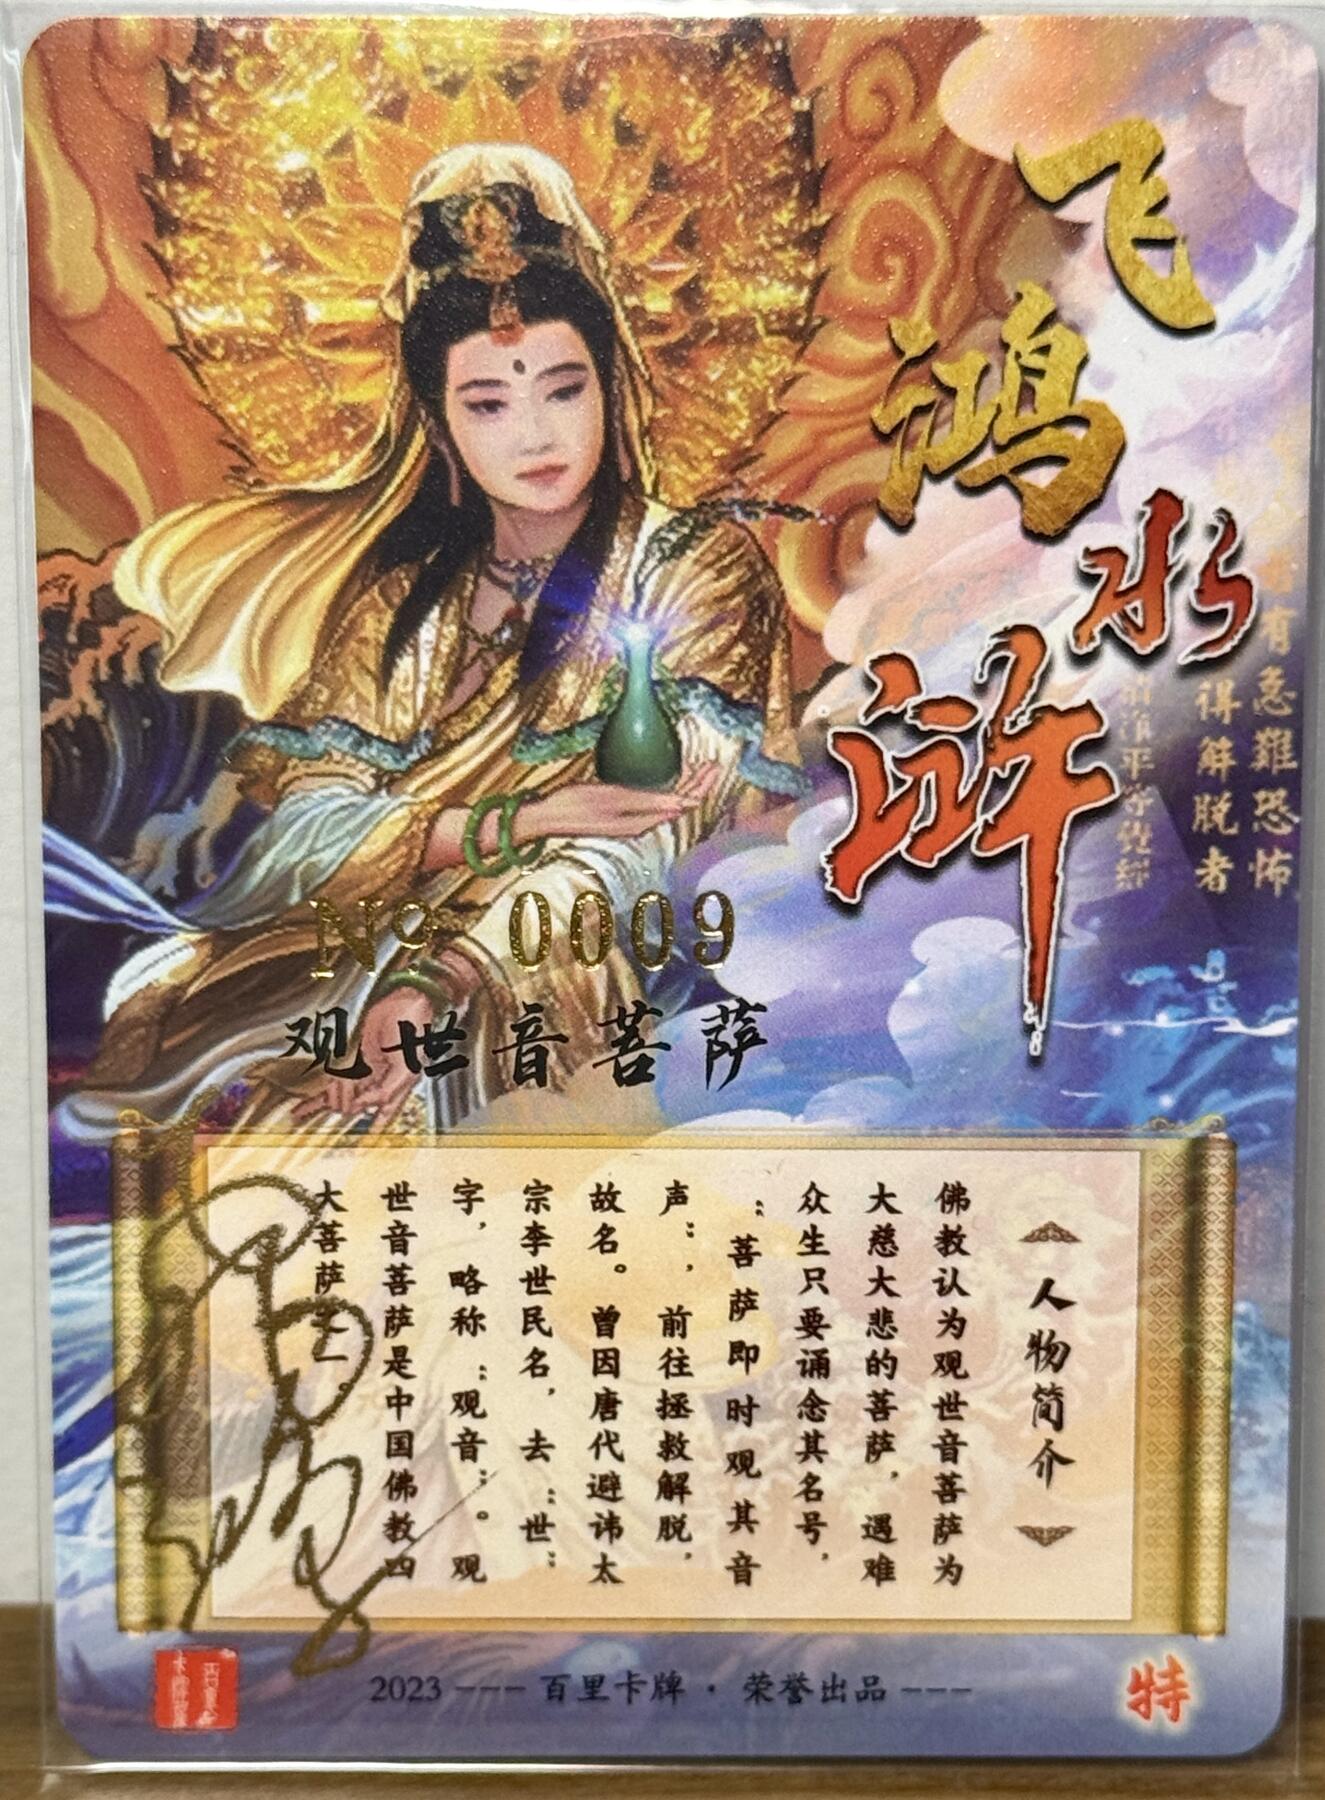 飞鸿
水浒
有急難恐怖
得解脱者
№ 0009
观世音菩萨
人物简介
佛教认为观世音菩萨为
大慈大悲的菩萨，遇难
众生只要诵念其名号，
“菩萨即时观其音
声”，前往拯救解脱，
故名。曾因唐代避讳太
宗李世民名，去“世”
字，略称“观音”。观
世音菩萨是中国佛教四
大菩萨之一。
2023 --- 百里卡牌 · 荣誉出品 ---
特